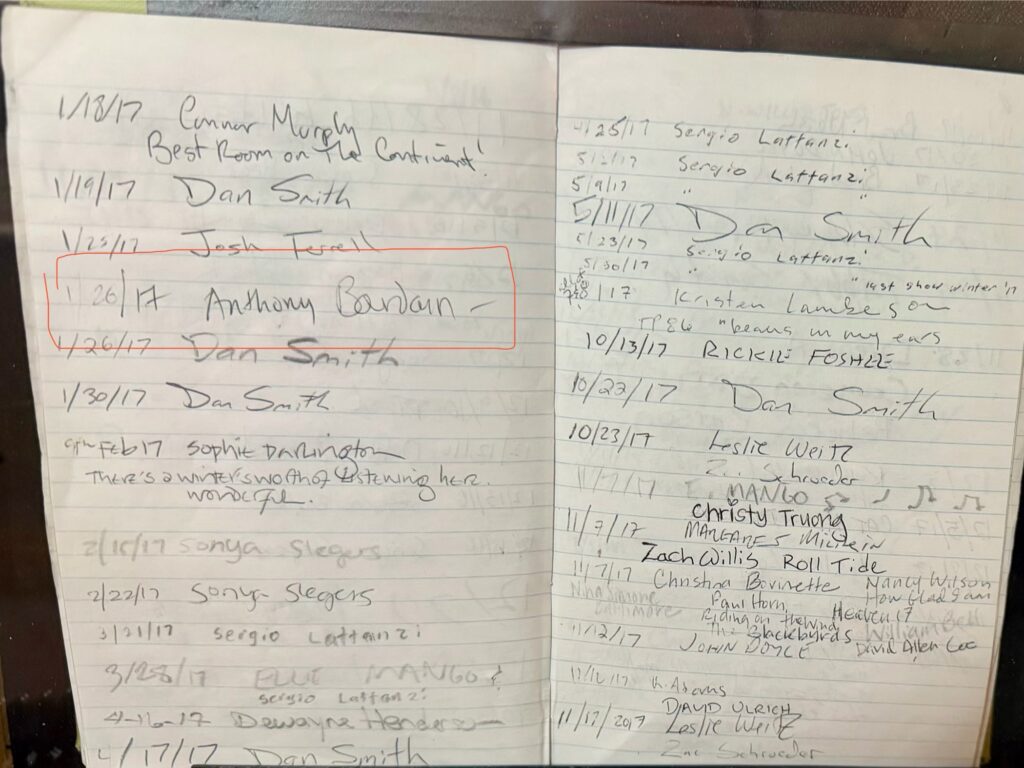 1/18/17 Connor Murphy
Best Room on The Continent!
1/19/17 Dan Smith
1/25/17 Josh Terrell
1/26/17 Anthony Bardain
1/26/17 Dan Smith
1/30/17 Dan Smith
9th Feb 17 Sophie Darlington
There's a winter's worth of listening here.
wonderful.
2/15/17 Sonya Slegers
2/22/17 Sonya Slegers
3/21/17 Sergio Lattanzi
3/28/17 MANGO
Sergio Lattanzi
4-16-17 Dewayne
4/17/17 Dan Smith
4/25/17 Sergio Lattanzi
5/2/17 Sergio Lattanzi
5/9/17 "
5/11/17 Dan Smith
5/23/17 Sergio Lattanzi
5/30/17 " "last show winter'n
/17 Kristen Lambeson
"beans in my ears
10/13/17 RICKIE FOSHEE
10/23/17 Dan Smith
10/23/17 Leslie Weitz
Z. Schroeder
11/7/17 MANGO
Christy Truong
11/7/17
Zach Willis ROLL TIDE
11/7/17 Christina Bovinette Nancy Wilson
Nina Simone Paul Horn How Glad I am
Baltimore Riding on the wind Heaven 17
The Blackbyrds William Bell
11/12/17 JOHN DOYCE David Allen Coe
K. Adams
DAVID ULRICH
11/17/2017 Leslie Weitz
Zac Schroeder